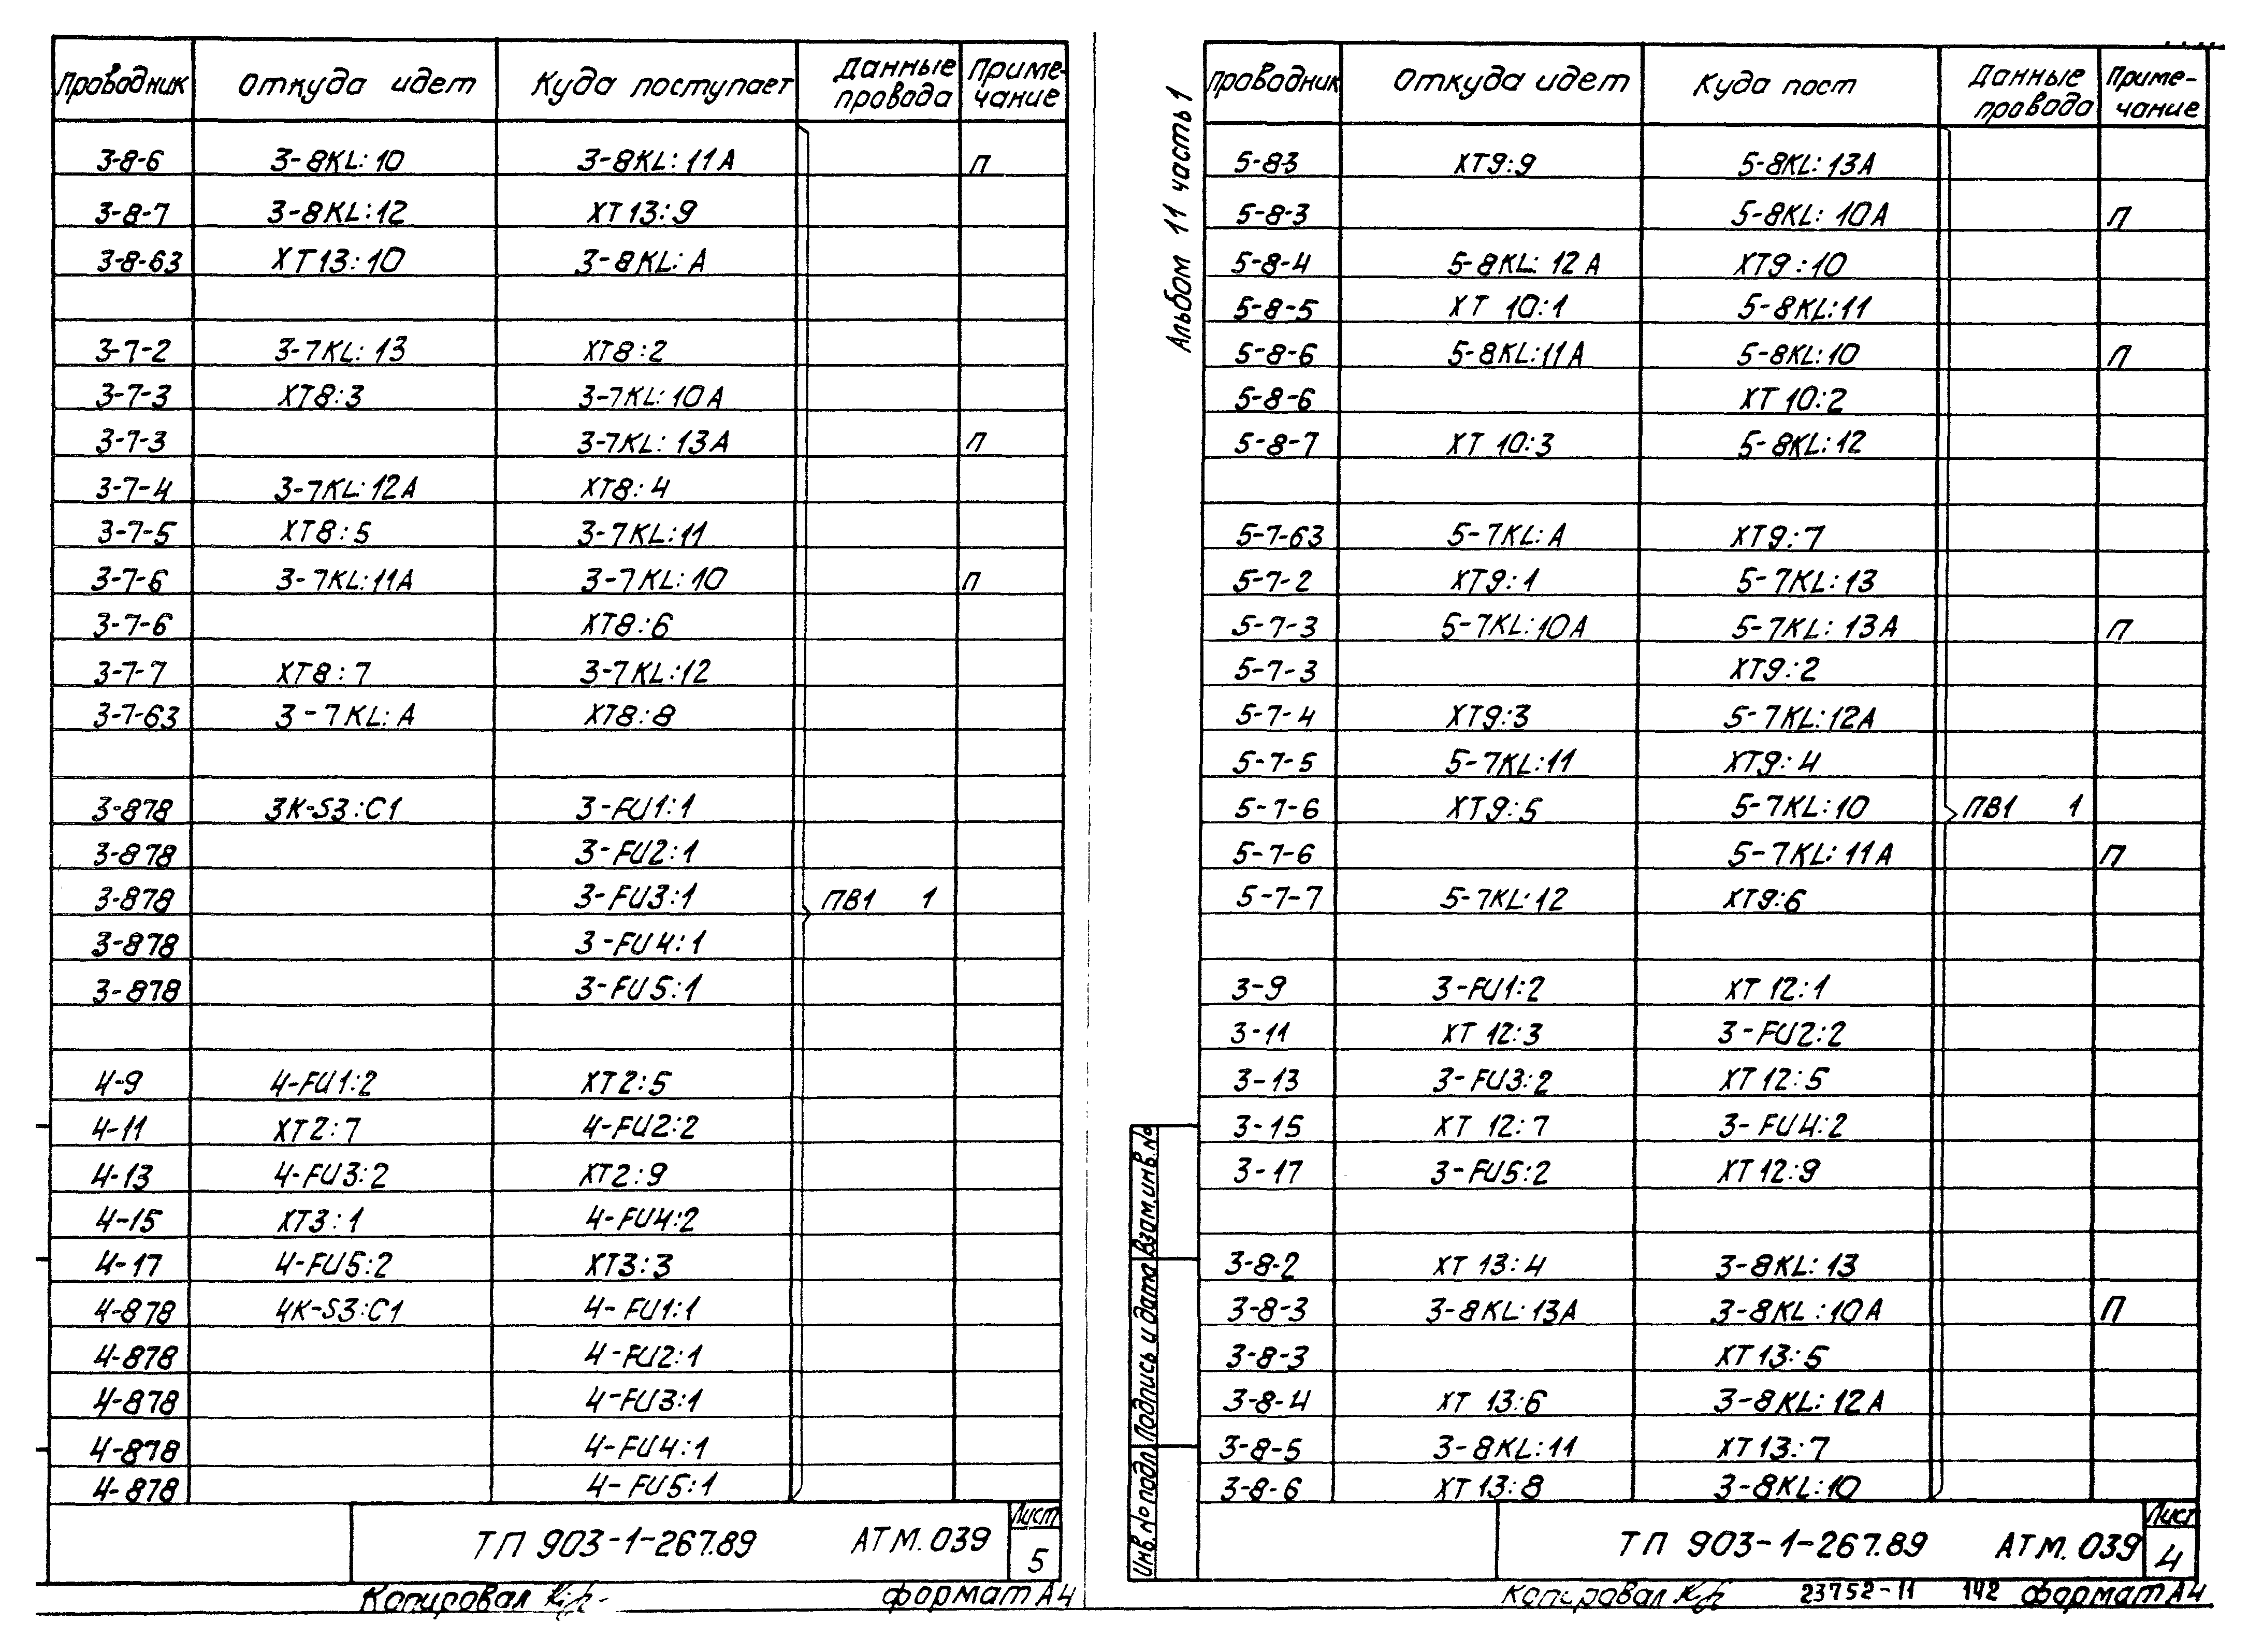 Проводник Откуда идет Куда поступает Данные провода Примечание
3-8-6 3-8KL:10 3-8KL:11A П
3-8-7 3-8KL:12 XT13:9
3-8-63 XT13:10 3-8KL:A
3-7-2 3-7KL:13 XT8:2
3-7-3 XT8:3 3-7KL:10A
3-7-3 3-7KL:13A П
3-7-4 3-7KL:12A XT8:4
3-7-5 XT8:5 3-7KL:11
3-7-6 3-7KL:11A 3-7KL:10 П
3-7-6 XT8:6
3-7-7 XT8:7 3-7KL:12
3-7-63 3-7KL:A XT8:8
3-878 3K-S3:C1 3-FU1:1
3-878 3-FU2:1
3-878 3-FU3:1 ПВ1 1
3-878 3-FU4:1
3-878 3-FU5:1
4-9 4-FU1:2 XT2:5
4-11 XT2:7 4-FU2:2
4-13 4-FU3:2 XT2:9
4-15 XT3:1 4-FU4:2
4-17 4-FU5:2 XT3:3
4-878 4K-S3:C1 4-FU1:1
4-878 4-FU2:1
4-878 4-FU3:1
4-878 4-FU4:1
4-878 4-FU5:1
ТП 903-1-267.89 АТМ.039 Лист 5
Копировал формат А4
Альбом 11 часть 1
Проводник Откуда идет Куда пост Данные провода Примечание
5-83 XT9:9 5-8KL:13A
5-8-3 5-8KL:10A П
5-8-4 5-8KL:12A XT9:10
5-8-5 XT 10:1 5-8KL:11
5-8-6 5-8KL:11A 5-8KL:10 П
5-8-6 XT 10:2
5-8-7 XT 10:3 5-8KL:12
5-7-63 5-7KL:A XT9:7
5-7-2 XT9:1 5-7KL:13
5-7-3 5-7KL:10A 5-7KL:13A П
5-7-3 XT9:2
5-7-4 XT9:3 5-7KL:12A
5-7-5 5-7KL:11 XT9:4
5-7-6 XT9:5 5-7KL:10 ПВ1 1
5-7-6 5-7KL:11A П
5-7-7 5-7KL:12 XT9:6
3-9 3-FU1:2 XT 12:1
3-11 XT 12:3 3-FU2:2
3-13 3-FU3:2 XT 12:5
3-15 XT 12:7 3-FU4:2
3-17 3-FU5:2 XT 12:9
3-8-2 XT 13:4 3-8KL:13
3-8-3 3-8KL:13A 3-8KL:10A П
3-8-3 XT 13:5
3-8-4 XT 13:6 3-8KL:12A
3-8-5 3-8KL:11 XT13:7
3-8-6 XT13:8 3-8KL:10
Инв.№ подл Подпись и дата Взам.инв.№
ТП 903-1-267.89 АТМ.039 Лист 4
Копировал 23752-11 142 формат А4